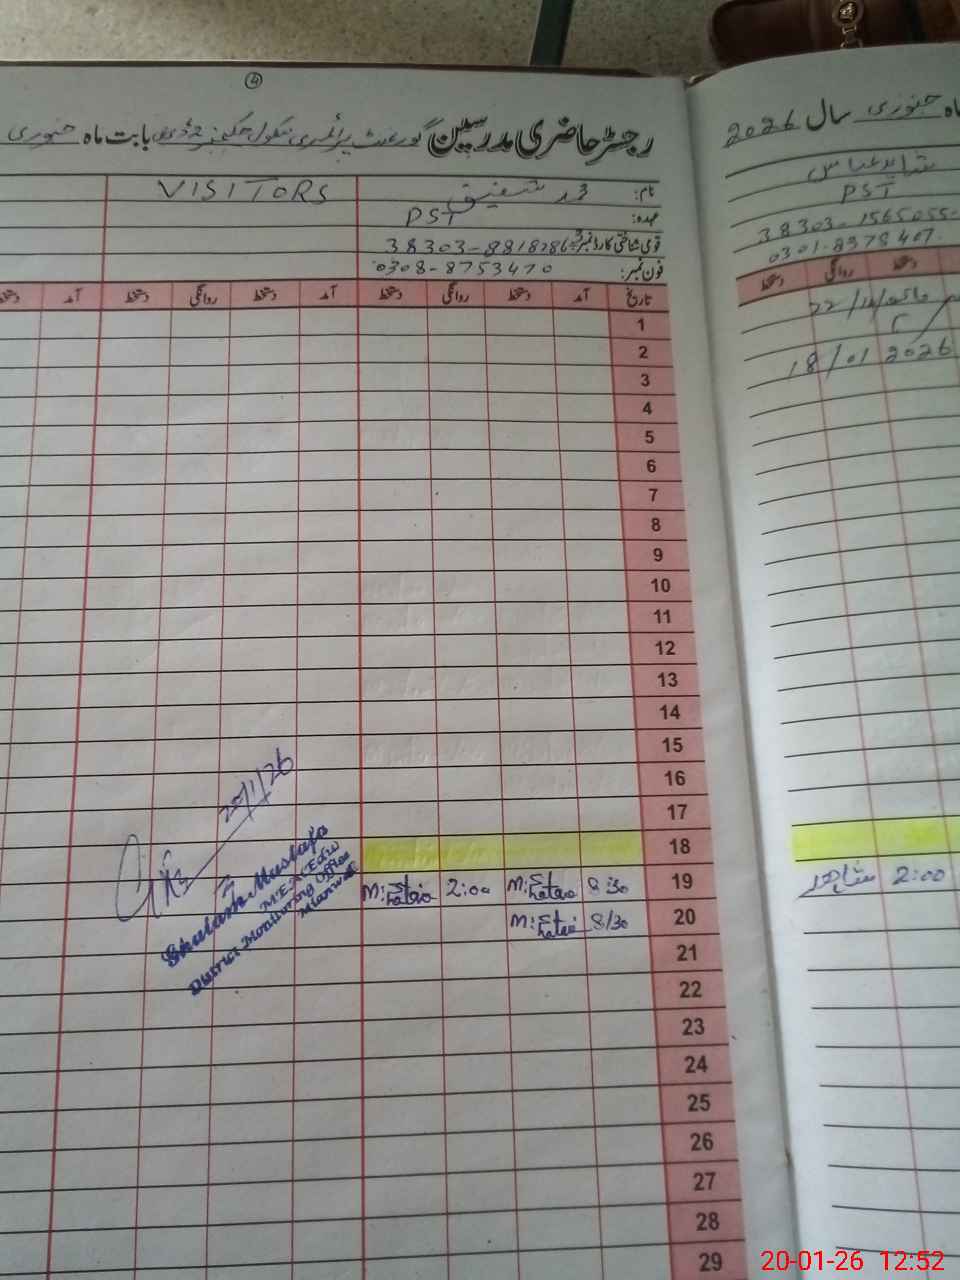 4
رجسٹر حاضری مدرسین گورنمنٹ پرائمری سکول بابت ماہ جنوری
ماہ جنوری سال 2026
نام: محمد شفیق
VISITORS
عہدہ: PST
قومی شناختی کارڈ نمبر: 38303-8818286-3
فون نمبر: 0308-8753470
تاریخ آمد دستخط روانگی دستخط آمد دستخط روانگی دستخط آمد
1
2
3
4
5
6
7
8
9
10
11
12
13
14
15
16
17
18
19 8:30 2:00
20 8/30
21
22
23
24
25
26
27
28
29
20/1/26
Ghulam Mustafa
M.E.A (Edu)
District Monitoring Office
Mianwali
شاہد عباس
PST
38303-1565055-
0301-8978407
دستخط روانگی دستخط
18/01/2026
2:00 شاہد
20-01-26 12:52